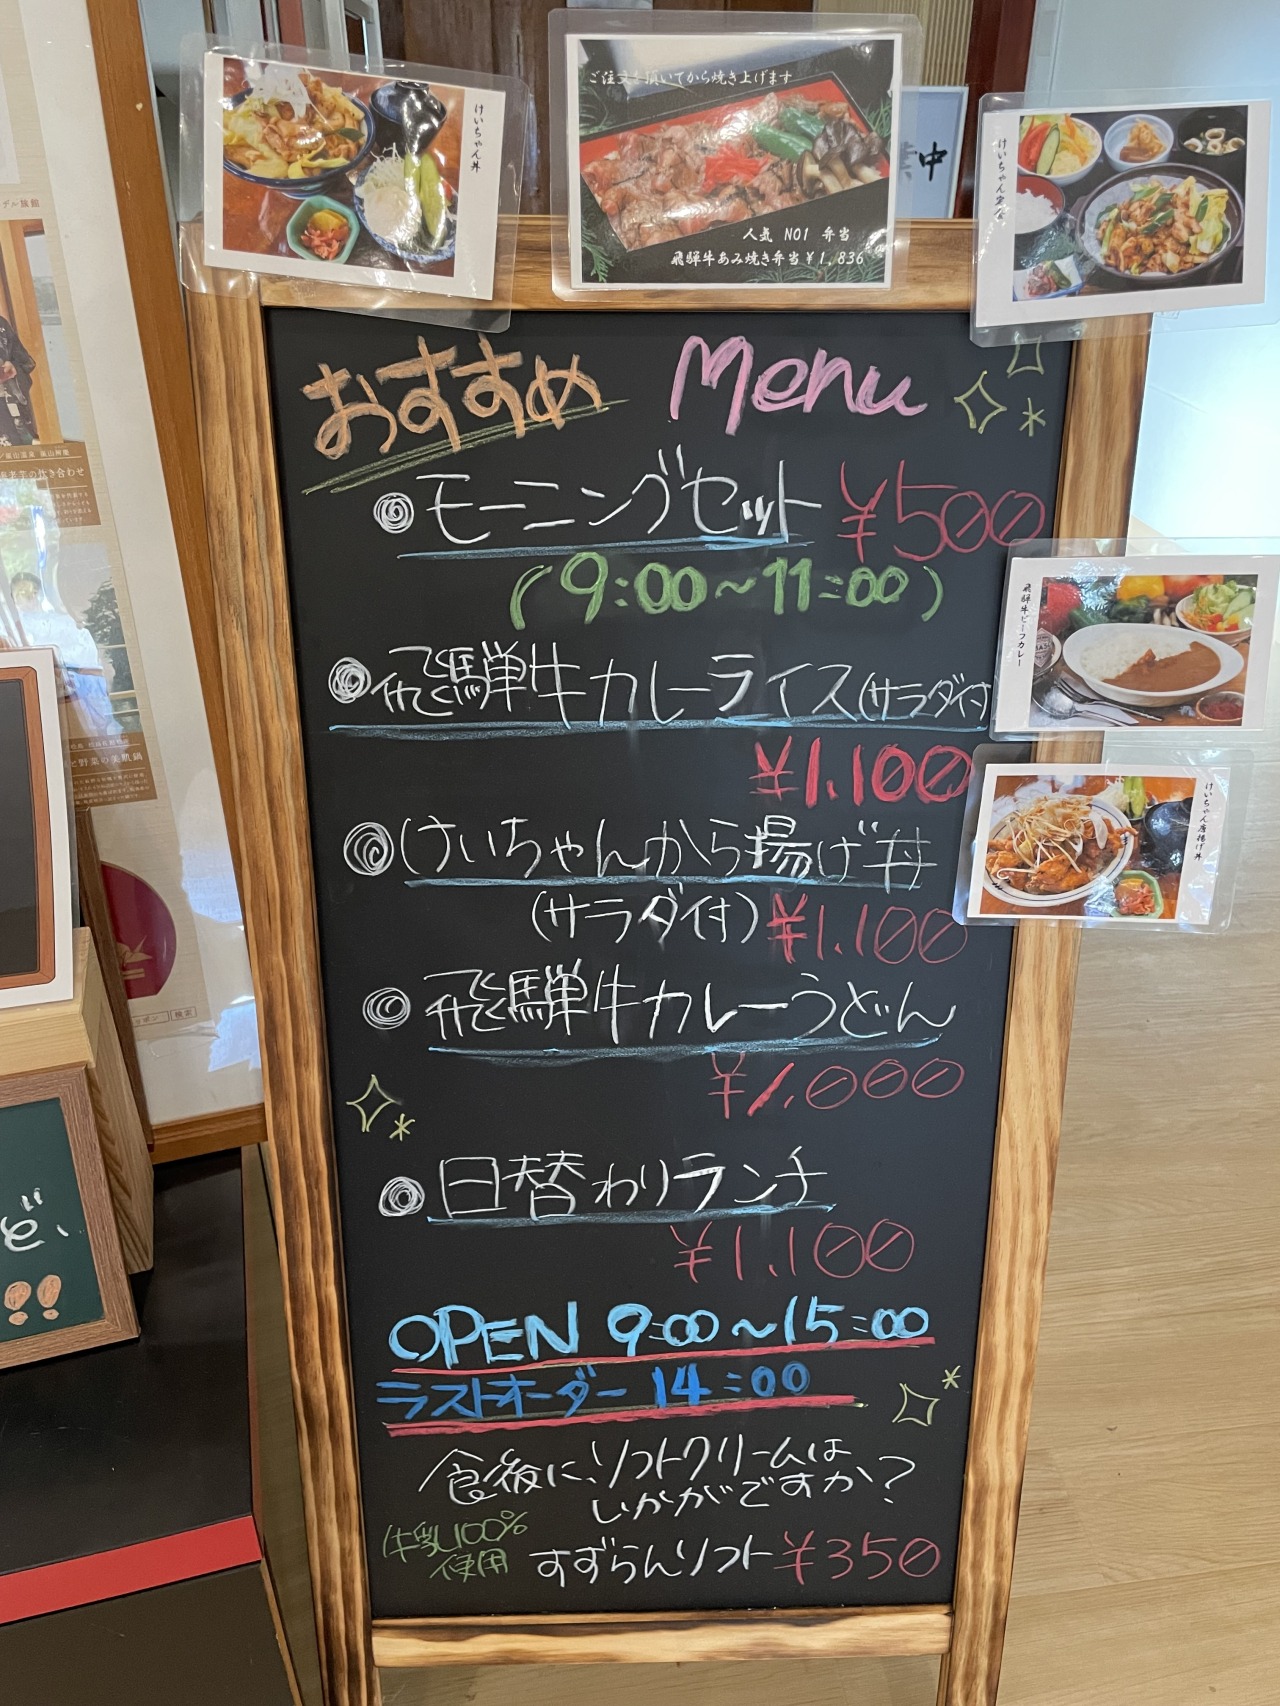 けいちゃん丼
ご注文を頂いてから焼き上げます
人気 NO1 弁当
飛騨牛あみ焼き弁当¥1,836
中
けいちゃん定食
おすすめ Menu
◎モーニングセット ¥500
(9:00~11:00)
◎飛騨牛カレーライス(サラダ付
¥1.100
飛騨牛ビーフカレー
◎けいちゃんから揚げ丼
(サラダ付) ¥1.100
けいちゃん唐揚げ丼
◎飛騨牛カレーうどん
¥1.000
◎日替わりランチ
¥1.100
OPEN 9:00~15:00
ラストオーダー 14:00
食後に、ソフトクリームは
いかがですか?
牛乳100%
使用
すずらんソフト ¥350
検索
ど、
!!